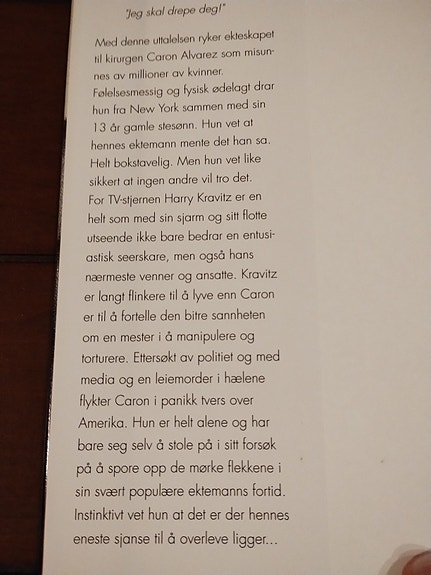 "Jeg skal drepe deg!"
Med denne uttalelsen ryker ekteskapet
til kirurgen Caron Alvarez som misun-
nes av millioner av kvinner.
Følelsesmessig og fysisk ødelagt drar
hun fra New York sammen med sin
13 år gamle stesønn. Hun vet at
hennes ektemann mente det han sa.
Helt bokstavelig. Men hun vet like
sikkert at ingen andre vil tro det.
For TV-stjernen Harry Kravitz er en
helt som med sin sjarm og sitt flotte
utseende ikke bare bedrar en entusi-
astisk seerskare, men også hans
nærmeste venner og ansatte. Kravitz
er langt flinkere til å lyve enn Caron
er til å fortelle den bitre sannheten
om en mester i å manipulere og
torturere. Ettersøkt av politiet og med
media og en leiemorder i hælene
flykter Caron i panikk tvers over
Amerika. Hun er helt alene og har
bare seg selv å stole på i sitt forsøk
på å spore opp de mørke flekkene i
sin svært populære ektemanns fortid.
Instinktivt vet hun at det er der hennes
eneste sjanse til å overleve ligger...